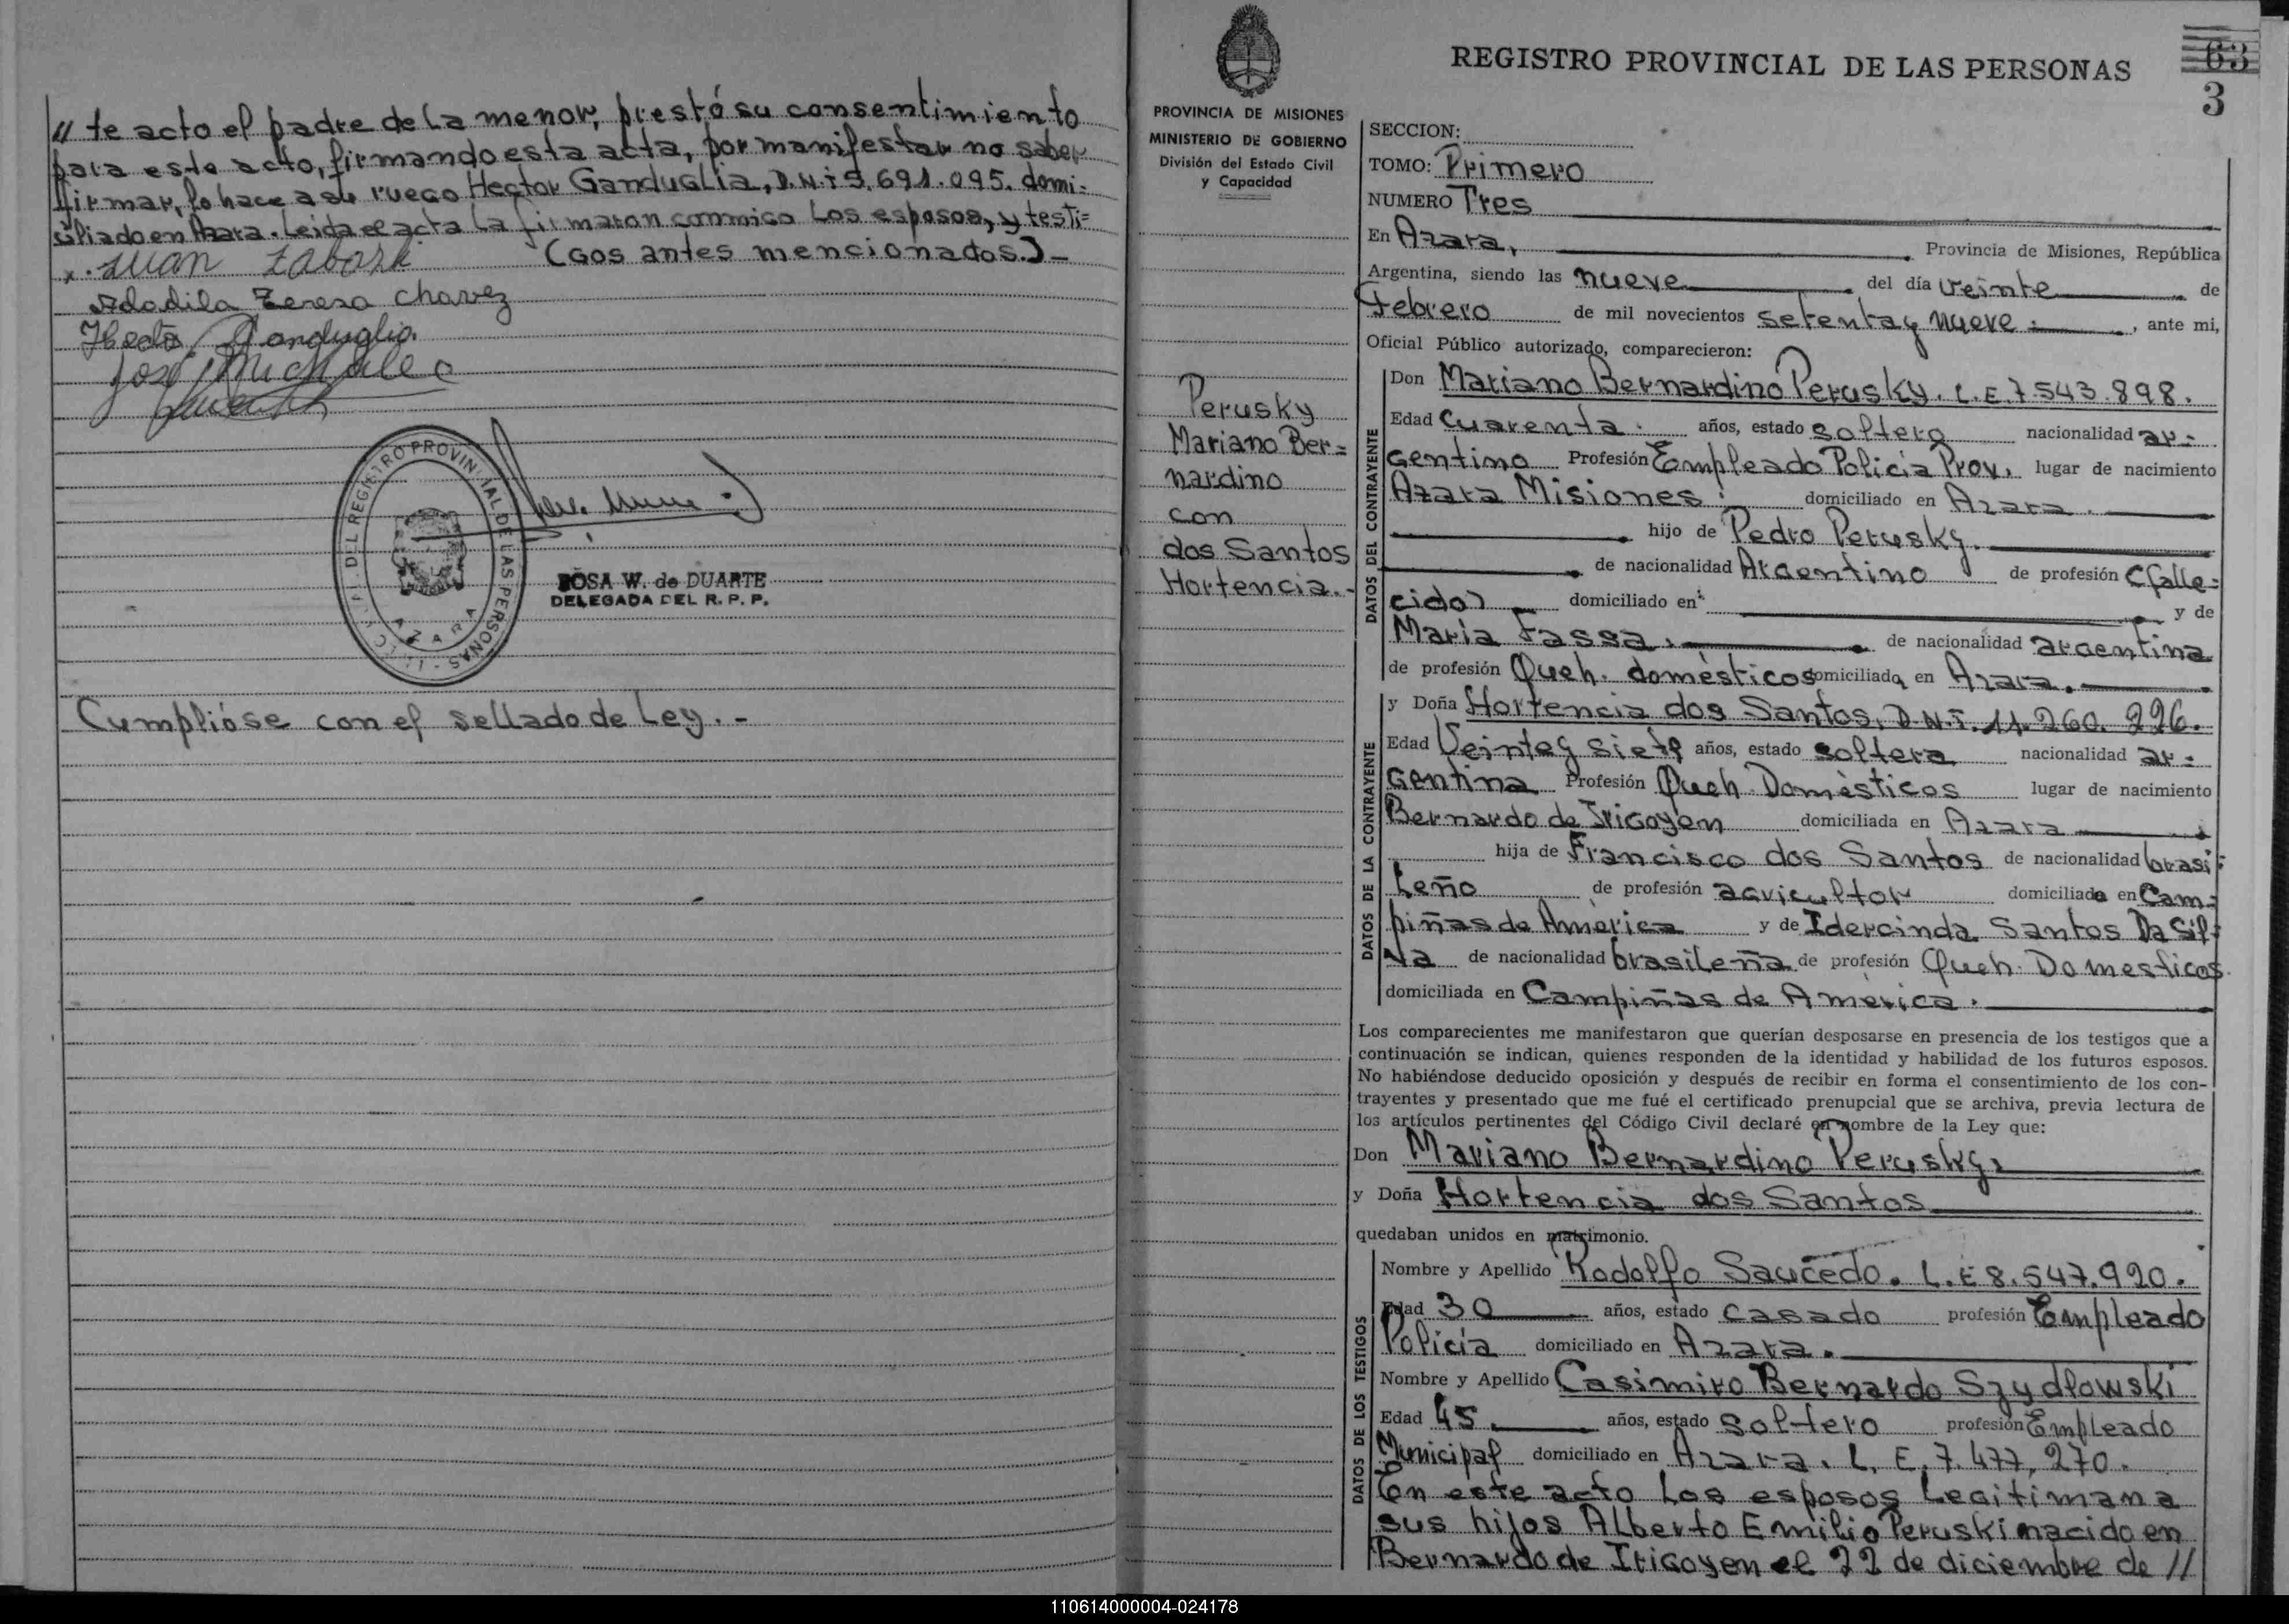 // te acto el padre de la menor, prestó su consentimiento
para este acto, firmando esta acta, por manifestar no saber
firmar, lo hace a su ruego Hector Ganduglia, D.N.I 5.691.095. domi=
siliado en Azara. Leida el acta la firmaron conmigo los esposos, y testi=
(gos antes mencionados.)-
x. Juan Zabork
Adadila Teresa Chavez
Hector Ganduglia.
José Michalec
DEL REGISTRO PROVINCIAL DE LAS PERSONAS
AZARA
ROSA W. de DUARTE
DELEGADA DEL R. P. P.
Cumplióse con el sellado de Ley. -
REGISTRO PROVINCIAL DE LAS PERSONAS
63
3
PROVINCIA DE MISIONES
MINISTERIO DE GOBIERNO
División del Estado Civil
y Capacidad
Perusky
Mariano Ber=
nardino
con
dos Santos
Hortencia.-
SECCION:
TOMO: Primero
NUMERO Tres
En Azara, Provincia de Misiones, República
Argentina, siendo las nueve del día veinte de
Febrero de mil novecientos setenta y nueve. , ante mi,
Oficial Público autorizado, comparecieron:
DATOS DEL CONTRAYENTE
Don Mariano Bernardino Perusky. L.E.7.543.898.
Edad Cuarenta. años, estado soltero nacionalidad ar=
gentino Profesión Empleado Policía Prov. lugar de nacimiento
Azara Misiones. domiciliado en Azara.
hijo de Pedro Perusky.
de nacionalidad Argentino de profesión (falle=
cido) domiciliado en y de
María Fassa. de nacionalidad argentina
de profesión Queh. domésticos domiciliada en Azara.
DATOS DE LA CONTRAYENTE
y Doña Hortencia dos Santos, D.N.I. 11.260.226.
Edad Veinte y siete años, estado soltera nacionalidad ar=
gentina Profesión Queh. Domésticos lugar de nacimiento
Bernardo de Irigoyen domiciliada en Azara
hija de Francisco dos Santos de nacionalidad brasi=
leño de profesión agricultor domiciliado en Cam=
piñas de América y de Idercinda Santos Da Sil=
va de nacionalidad brasileña de profesión Queh. Domesticos
domiciliada en Campiñas de América.
Los comparecientes me manifestaron que querían desposarse en presencia de los testigos que a
continuación se indican, quienes responden de la identidad y habilidad de los futuros esposos.
No habiéndose deducido oposición y después de recibir en forma el consentimiento de los con-
trayentes y presentado que me fué el certificado prenupcial que se archiva, previa lectura de
los artículos pertinentes del Código Civil declaré en nombre de la Ley que:
Don Mariano Bernardino Perusky,
y Doña Hortencia dos Santos
quedaban unidos en matrimonio.
DATOS DE LOS TESTIGOS
Nombre y Apellido Rodolfo Saucedo. L.E 8.547.920.
Edad 30 años, estado casado profesión Empleado
Policía domiciliado en Azara.
Nombre y Apellido Casimiro Bernardo Szydlowski
Edad 45. años, estado soltero profesión Empleado
Municipal domiciliado en Azara. L. E. 7.477.270.
En este acto los esposos Legitimana
sus hijos Alberto Emilio Peruski nacido en
Bernardo de Irigoyen el 22 de diciembre de //
110614000004-024178